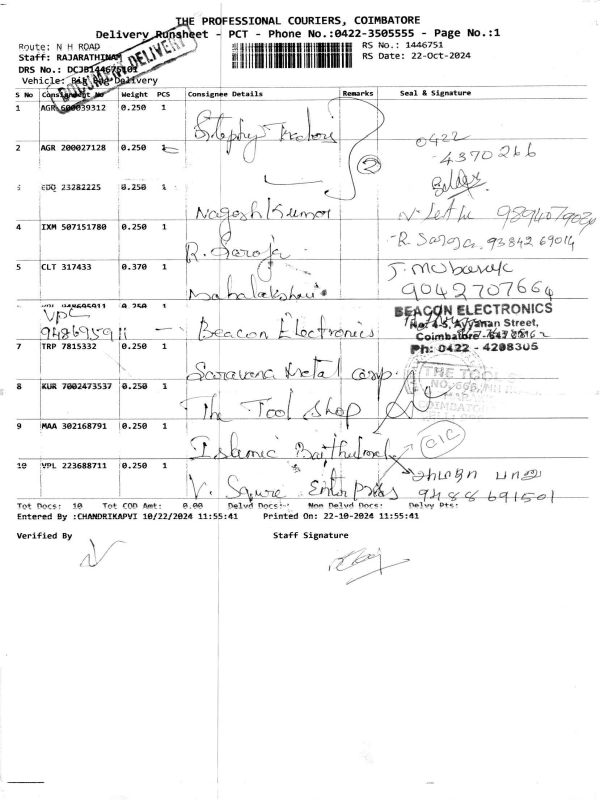 THE PROFESSIONAL COURIERS, COIMBATORE
Delivery Runsheet - PCT - Phone No.:0422-3505555 - Page No.:1
Route: N H ROAD
RS No.: 1446751
Staff: RAJARATHINAM
RS Date: 22-Oct-2024
DRS No.: DCJB144675101
Vehicle: Delivery
DELIVERY
S No Consignment No Weight PCS Consignee Details Remarks Seal & Signature
1 AGR 600039312 0.250 1
0422
2 AGR 200027128 0.250 1 2 4370266
EDQ 23282225 0.250 1
Nagesh Kumar
4 IXM 507151780 0.250 1 R. Saroja, 93842 69014
R. Saroja
5 CLT 317433 0.370 1 J. Mubarak
9042707664
Mahalakshmi
0.250 1
VPL
9486959 11 Beacon Electronics
BEACON ELECTRONICS
No: 4-5, Ayyanan Street,
Coimbatore
Ph: 0422 - 4208305
7 TRP 7815332 0.250 1
Saravana Metal Corp.
THE TOOL S
8 KUR 7002473537 0.250 1
The Tool Shop
COIMBATO
9 MAA 302168791 0.250 1
Islamic Baithulmal
CIC
10 VPL 223688711 0.250 1
V. Squre Enterprises
9488691501
Tot Docs: 10 Tot COD Amt: 0.00 Delvd Docs: Non Delvd Docs: Delvy Pts:
Entered By :CHANDRIKAPVI 10/22/2024 11:55:41 Printed On: 22-10-2024 11:55:41
Verified By Staff Signature